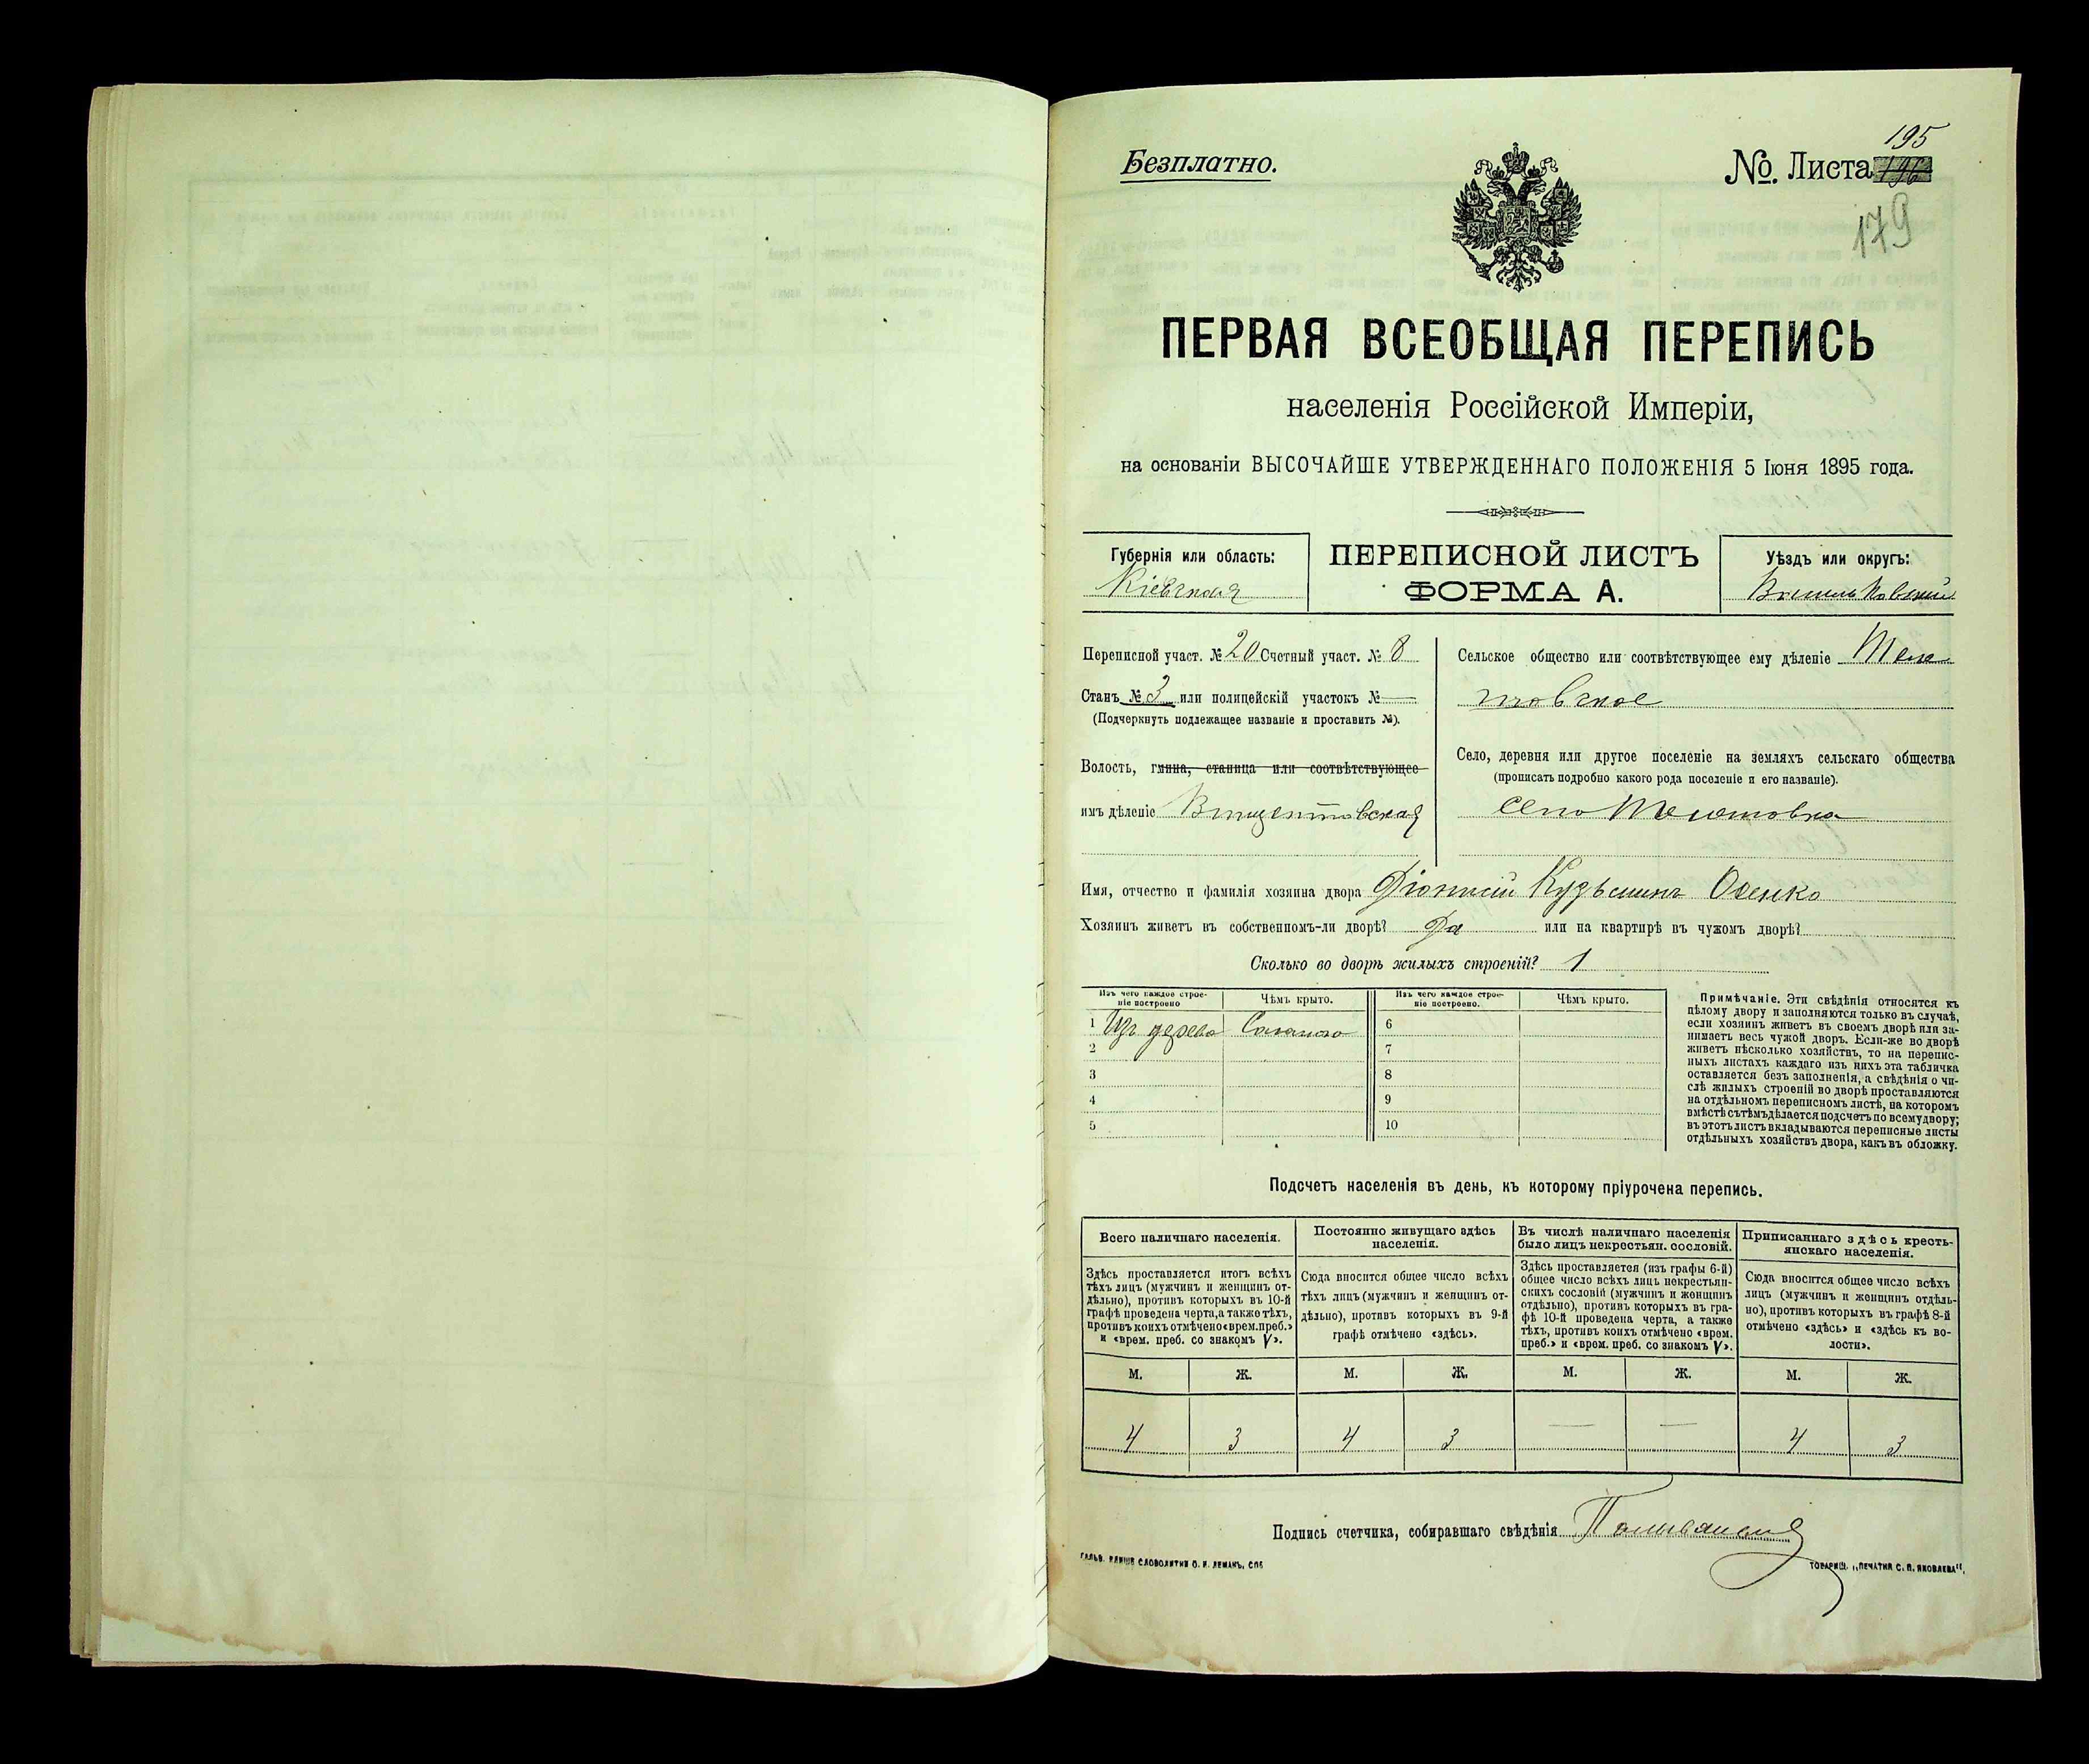 Безплатно.
195
№. Листа 196
179
ПЕРВАЯ ВСЕОБЩАЯ ПЕРЕПИСЬ
населенія Россійской Имперіи,
на основаніи ВЫСОЧАЙШЕ УТВЕРЖДЕННАГО ПОЛОЖЕНІЯ 5 Іюня 1895 года.
Губернія или область:
Кіевская
ПЕРЕПИСНОЙ ЛИСТЪ
ФОРМА А.
Уѣздъ или округъ:
Васильковскій
Переписной участ. № 20 Счетный участ. № 8
Станъ № 3 или полицейскій участокъ № —
(Подчеркнуть подлежащее названіе и проставить №).
Волость, гмина, станица или соотвѣтствующее
имъ дѣленіе Винцентовская
Сельское общество или соотвѣтствующее ему дѣленіе Теле
товское
Село, деревня или другое поселеніе на земляхъ сельскаго общества
(прописать подробно какого рода поселеніе и его названіе).
село
Имя, отчество и фамилія хозяина двора Діонисій Кузьминъ
Хозяинъ живетъ въ собственномъ-ли дворѣ? Да или на квартирѣ въ чужомъ дворѣ?
Сколько во дворѣ жилыхъ строеній? 1
Изъ чего каждое строе-
ніе построено
Чѣмъ крыто.
Изъ чего каждое строе-
ніе построено.
Чѣмъ крыто.
1 Изъ дерева Соломою 6
2 7
3 8
4 9
5 10
Примѣчаніе. Эти свѣдѣнія относятся къ
цѣлому двору и заполняются только въ случаѣ,
если хозяинъ живетъ въ своемъ дворѣ или за-
нимаетъ весь чужой дворъ. Если-же во дворѣ
живетъ нѣсколько хозяйствъ, то на перепис-
ныхъ листахъ каждаго изъ нихъ эта табличка
оставляется безъ заполненія, а свѣдѣнія о чи-
слѣ жилыхъ строеній во дворѣ проставляются
на отдѣльномъ переписномъ листѣ, на которомъ
вмѣстѣ съ тѣмъ дѣлается подсчетъ по всему двору;
въ этотъ листъ вкладываются переписные листы
отдѣльныхъ хозяйствъ двора, какъ въ обложку.
Подсчетъ населенія въ день, къ которому пріурочена перепись.
Всего наличнаго населенія.
Здѣсь проставляется итогъ всѣхъ
тѣхъ лицъ (мужчинъ и женщинъ от-
дѣльно), противъ которыхъ въ 10-й
графѣ проведена черта, а также тѣхъ,
противъ коихъ отмѣчено «врем. преб.»
и «врем. преб. со знакомъ V».
Постоянно живущаго здѣсь
населенія.
Сюда вносится общее число всѣхъ
тѣхъ лицъ (мужчинъ и женщинъ от-
дѣльно), противъ которыхъ въ 9-й
графѣ отмѣчено «здѣсь».
Въ числѣ наличнаго населенія
было лицъ некрестьян. сословій.
Здѣсь проставляется (изъ графы 6-й)
общее число всѣхъ лицъ некрестьян-
скихъ сословій (мужчинъ и женщинъ
отдѣльно), противъ которыхъ въ гра-
фѣ 10-й проведена черта, а также
тѣхъ, противъ коихъ отмѣчено «врем.
преб.» и «врем. преб. со знакомъ V».
Приписаннаго здѣсь кресть-
янскаго населенія.
Сюда вносится общее число всѣхъ
лицъ (мужчинъ и женщинъ отдѣль-
но), противъ которыхъ въ графѣ 8-й
отмѣчено «здѣсь» и «здѣсь къ во-
лости».
М. Ж. М. Ж. М. Ж. М. Ж.
4 3 4 3 — — 4 3
Подпись счетчика, собиравшаго свѣдѣнія
ГАЛЬВ. КЛИШЕ СЛОВОЛИТНИ О. И. ЛЕМАНЪ, СПБ
ТОВАРИЩ. „ПЕЧАТНЯ С. П. ЯКОВЛЕВА“.